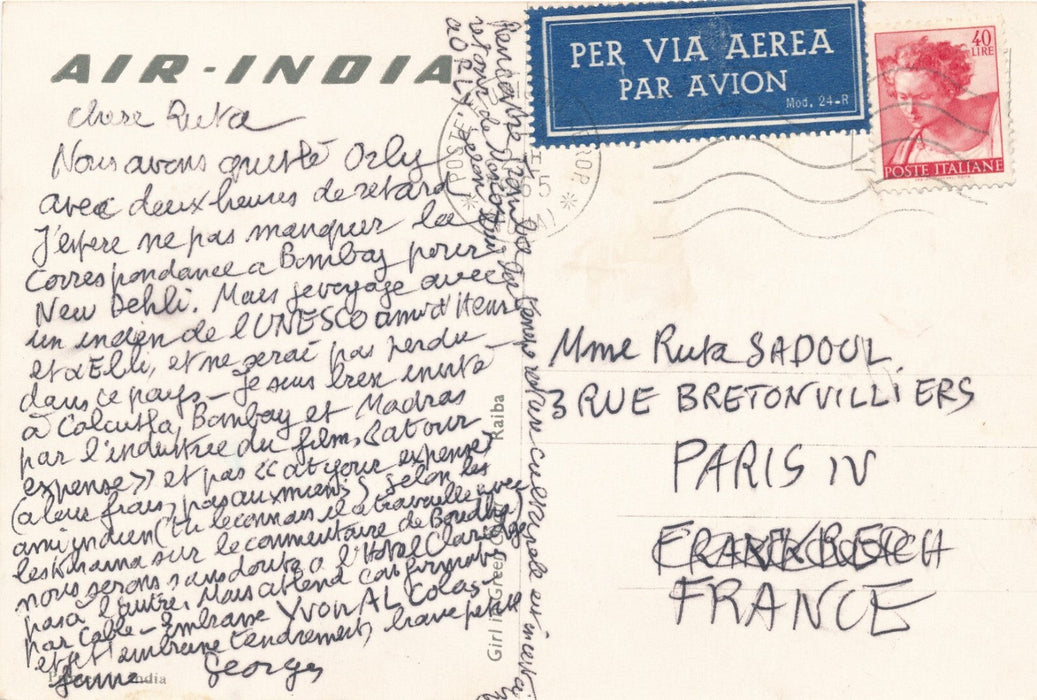 AIR-INDIA
PER VIA AEREA
PAR AVION
Mod. 24-R
40
LIRE
POSTE ITALIANE
65
Chere Ruta
Nous avons quitté Orly
avec deux heures de retard
J'espere ne pas manquer la
correspondance a Bombay pour
New Dehli. Mais je voyage avec
un indien de l'UNESCO ami d'Henri
et d'Elli, et ne serai pas perdu
dans ce pays — Je suis bien invité
à Calcutta, Bombay et Madras
par l'industrie du film, « at our
expense » et pas « at your expense »
(a leurs frais, pas aux miens) selon les
ami indien (tu le connais il a travaillé avec
les Krishna sur le commentaire de Boudha)
nous serons sans doute a l'Hotel Claridge
pas à l'autre. Mais attend confirmation
par cable — Embrasse Yvon AL Colas
et je t'embrasse tendrement, brave petite
femme Georges
retour de Moscou
a ORLY.
Mme Ruta SADOUL
3 RUE BRETONVILLIERS
PARIS IV
FRANKREICH
FRANCE
Girl in Green Raiba